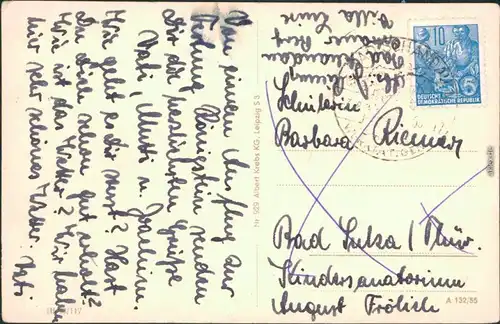 Von einem Ausflug zur
Festung Königstein senden
Dir die herzlichsten Grüße
Vati, Mutti u. Joachim.
Wie geht es Dir sonst? Hast
Du Dich schon gut erholt?
Wie ist das Wetter? Wir haben
hier sehr schönes Wetter. Vati
Nr 929 Albert Krebs KG., Leipzig S 3
Bad Schandau
Villa Luise
10
DEUTSCHE
DEMOKRATISCHE REPUBLIK
Schülerin
Barbara Riemer
Bad Sulza / Thür.
Kindersanatorium
August Frölich
A 132/55